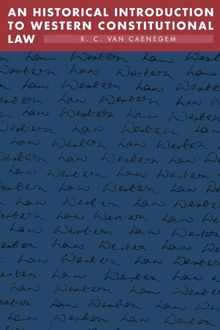 AN HISTORICAL INTRODUCTION
TO WESTERN CONSTITUTIONAL
LAW
R. C. VAN CAENEGEM
Law Western Law
Western Law Western
Law Western Law
Western Law Western
Law Western Law
Western Law Western
Law Western Law
Western Law Western
Law Western Law
Western Law Western
Law Western Law
Western Law Western
Law Western Law